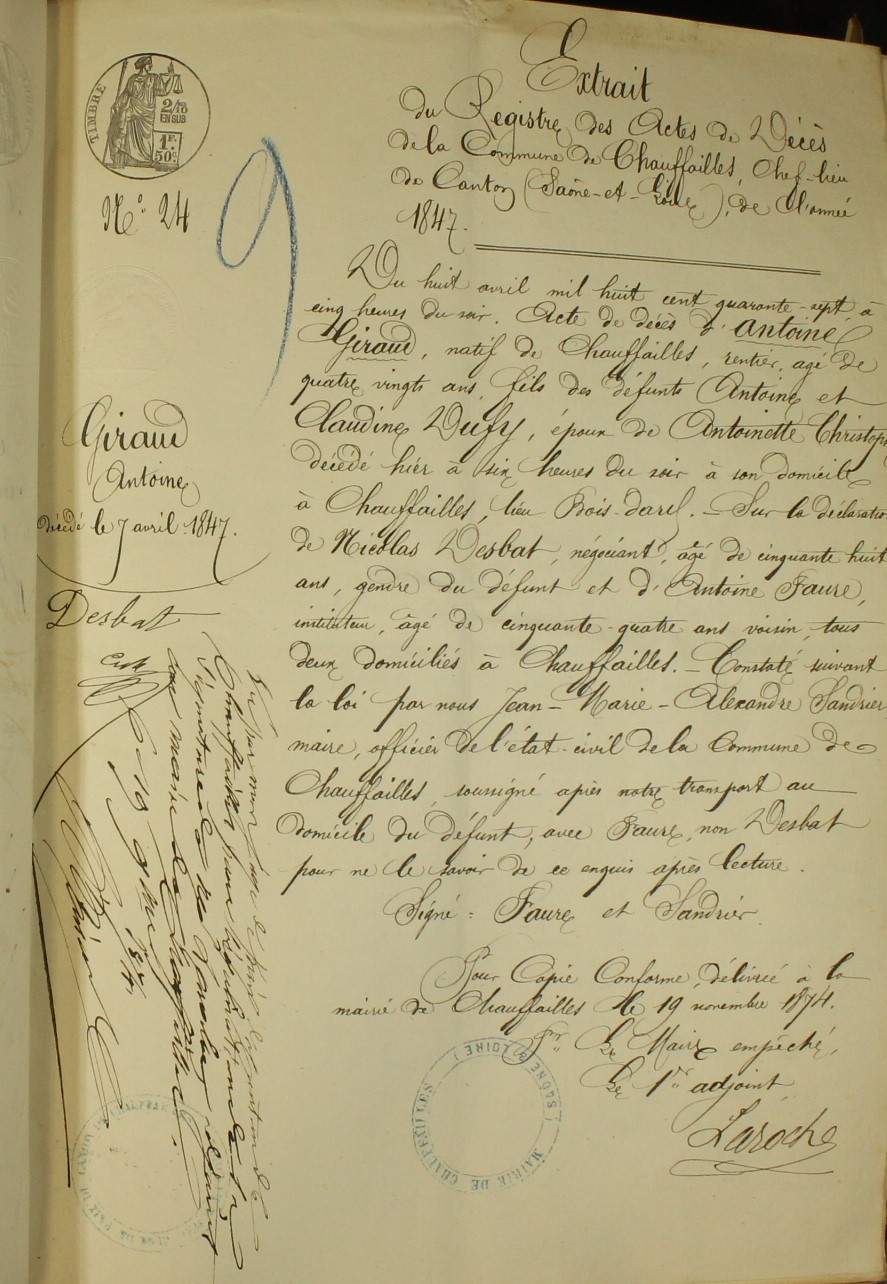 TIMBRE
2/10
EN SUS
1F.
50c.
N.º 24
9
Extrait
du Registre des Actes de Décès
de la Commune de Chauffailles, Chef-lieu
de Canton (Saône-et-Loire), de l'année
1847.
Du huit avril mil huit cent quarante-sept, à
cinq heures du soir. Acte de décès d'Antoine
Giraud, natif de Chauffailles, rentier, agé de
quatre vingts ans, fils des défunts Antoine et
Claudine Dufy, époux de Antoinette Christoph
décédé hier à six heures du soir à son domicile
à Chauffailles, lieu Bois-darl. - Sur la déclaratio
de Nicolas Desbat, négociant, âgé de cinquante huit
ans, gendre du défunt et d'Antoine Faure,
instituteur, âgé de cinquante-quatre ans voisin, tous
deux domiciliés à Chauffailles. - Constaté suivant
la loi par nous Jean-Marie-Alexandre Sandrier
maire, officier de l'état-civil de la Commune de
Chauffailles, soussigné après notre transport au
domicile du défunt, avec Faure, non Desbat
pour ne le savoir de ce enquis après lecture.
Signé = Faure et Sandrier
Pour Copie Conforme, délivrée à la
mairie de Chauffailles le 19 novembre 1874.
Pr. Le Maire empêché,
Le 1er adjoint
Laroche
MAIRIE DE CHAUFFAILLES (SAÔNE & LOIRE)
Giraud
Antoine
décédé le 7 avril 1847.
Desbat
Vu par nous juge de paix du canton de
Chauffailles pour légalisation de la
signature de Mr Laroche adjoint
au maire de Chauffailles.